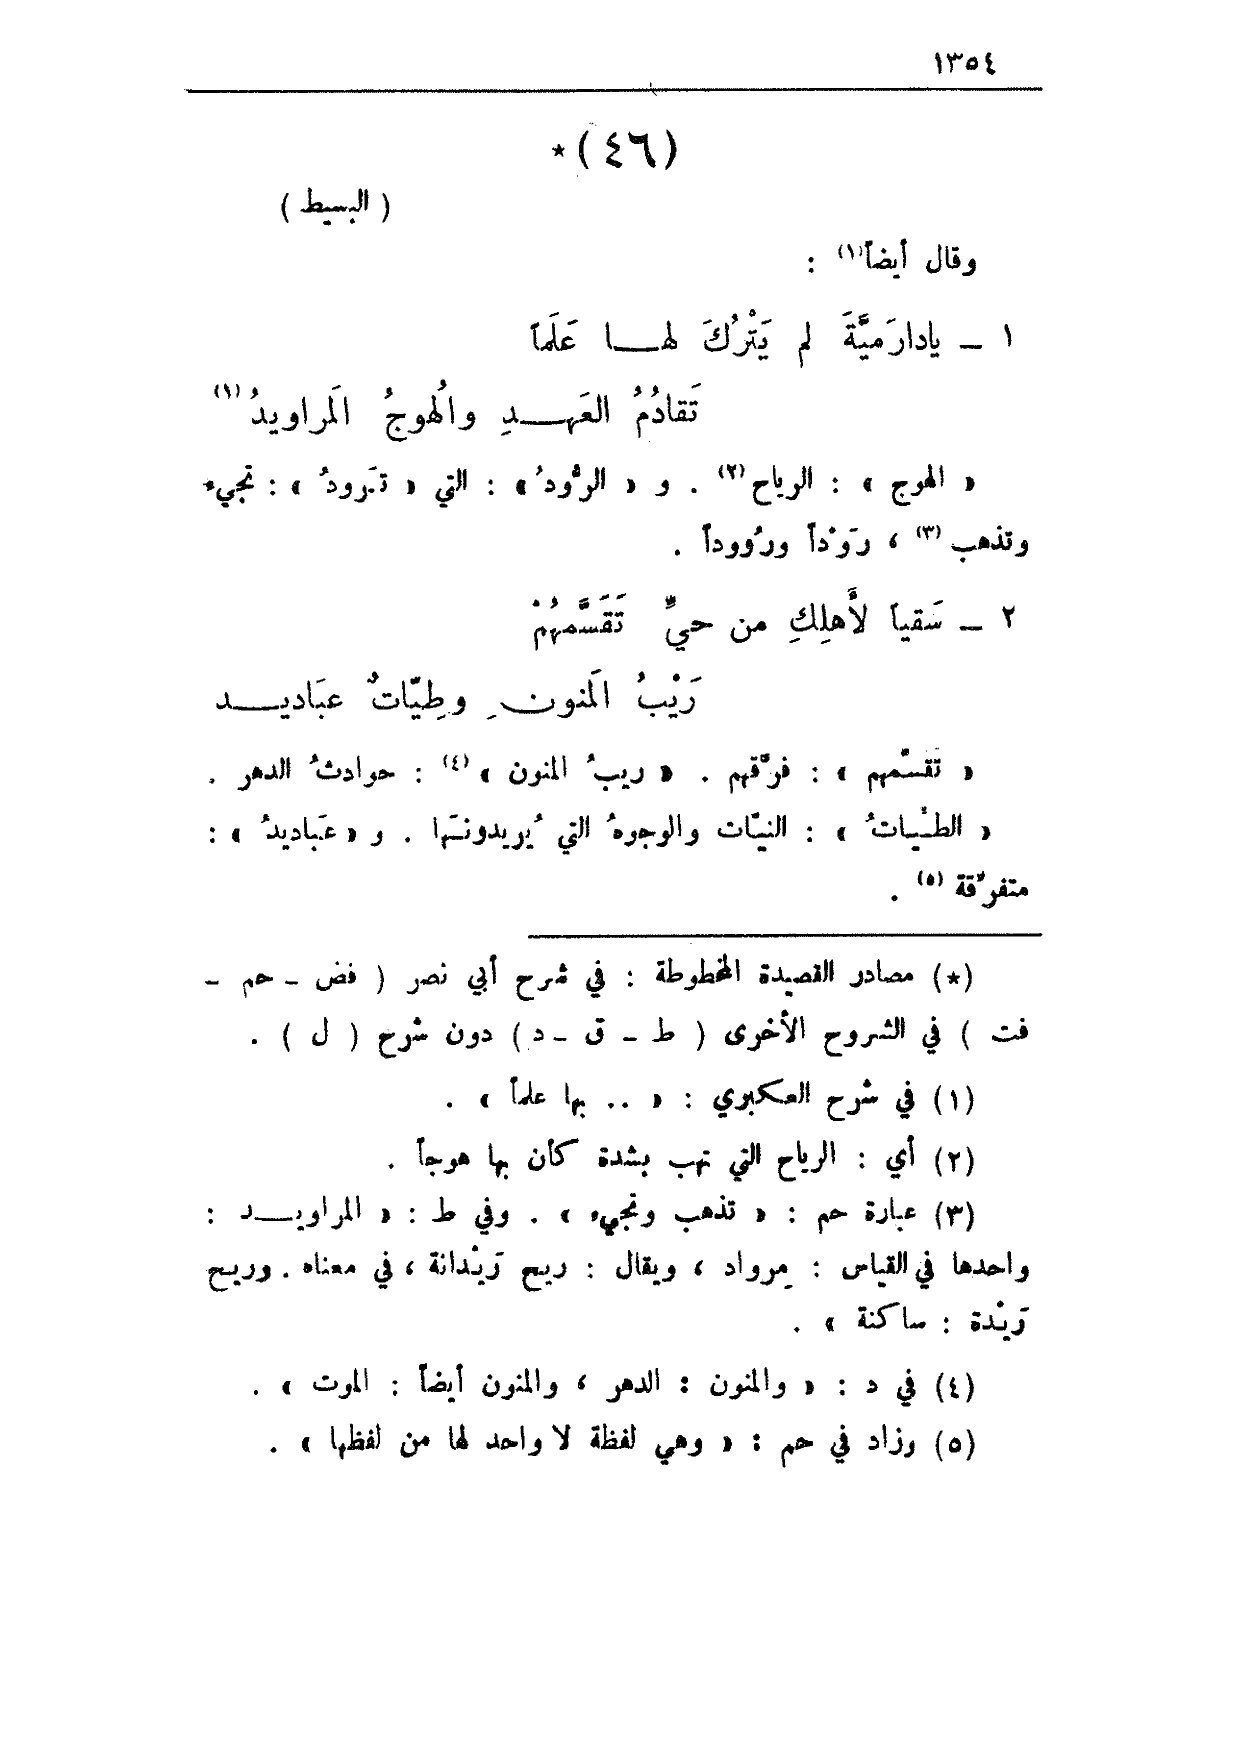 ١٣٥٤
(٤٦) *
( البسيط )
وقال أيضاً(١) :
١ ــ يادارَميَّةَ لم يَتْرُكَ لهــا عَلَماً
تَقادُمُ العَهــدِ والُهوجُ الَمراويدُ(١)
« الهوج » : الرياح(٢) . و « الرُّودُ » : التي « تَرودُ » : تجيء
وتذهب(٣) ، رَوْداً ورُووداً .
٢ ــ سَقياً لأَهلِكِ من حيٍّ تَقَسَّمهُمْ
رَيْبُ الَمنونِ وطِيّاتٌ عبَاديــد
« تقسّمهم » : فرَّقهم . « ريبُ المنون »(٤) : حوادثُ الدهر .
« الطيْـاتُ » : النيّات والوجوهُ التي يُريدونَها . و « عَباديدُ » :
متفرّقة (٥) .
(*) مصادر القصيدة المخطوطة : في شرح أبي نصر ( فض ــ حم ــ
فت ) في الشروح الأخرى ( ط ــ ق ــ د ) دون شرح ( ل ) .
(١) في شرح العكبري : « .. بها علماً » .
(٢) أي : الرياح التي تهب بشدة كأن بها هوجاً .
(٣) عبارة حم : « تذهب وتجيء » . وفي ط : « المراويــد :
واحدها في القياس : مِرواد ، ويقال : ريح رَيْدانة ، في معناه . وريح
رَيْدة : ساكنة » .
(٤) في د : « والمنون : الدهر ، والمنون أيضاً : الموت » .
(٥) وزاد في حم : « وهي لفظة لا واحد لها من لفظها » .